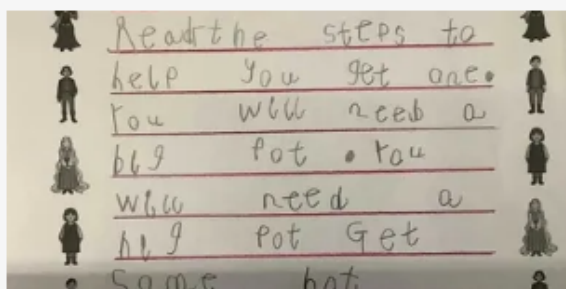 Readrthe steps to
help you get one.
You will need a
big pot . You
will need a
big pot Get
Some hot